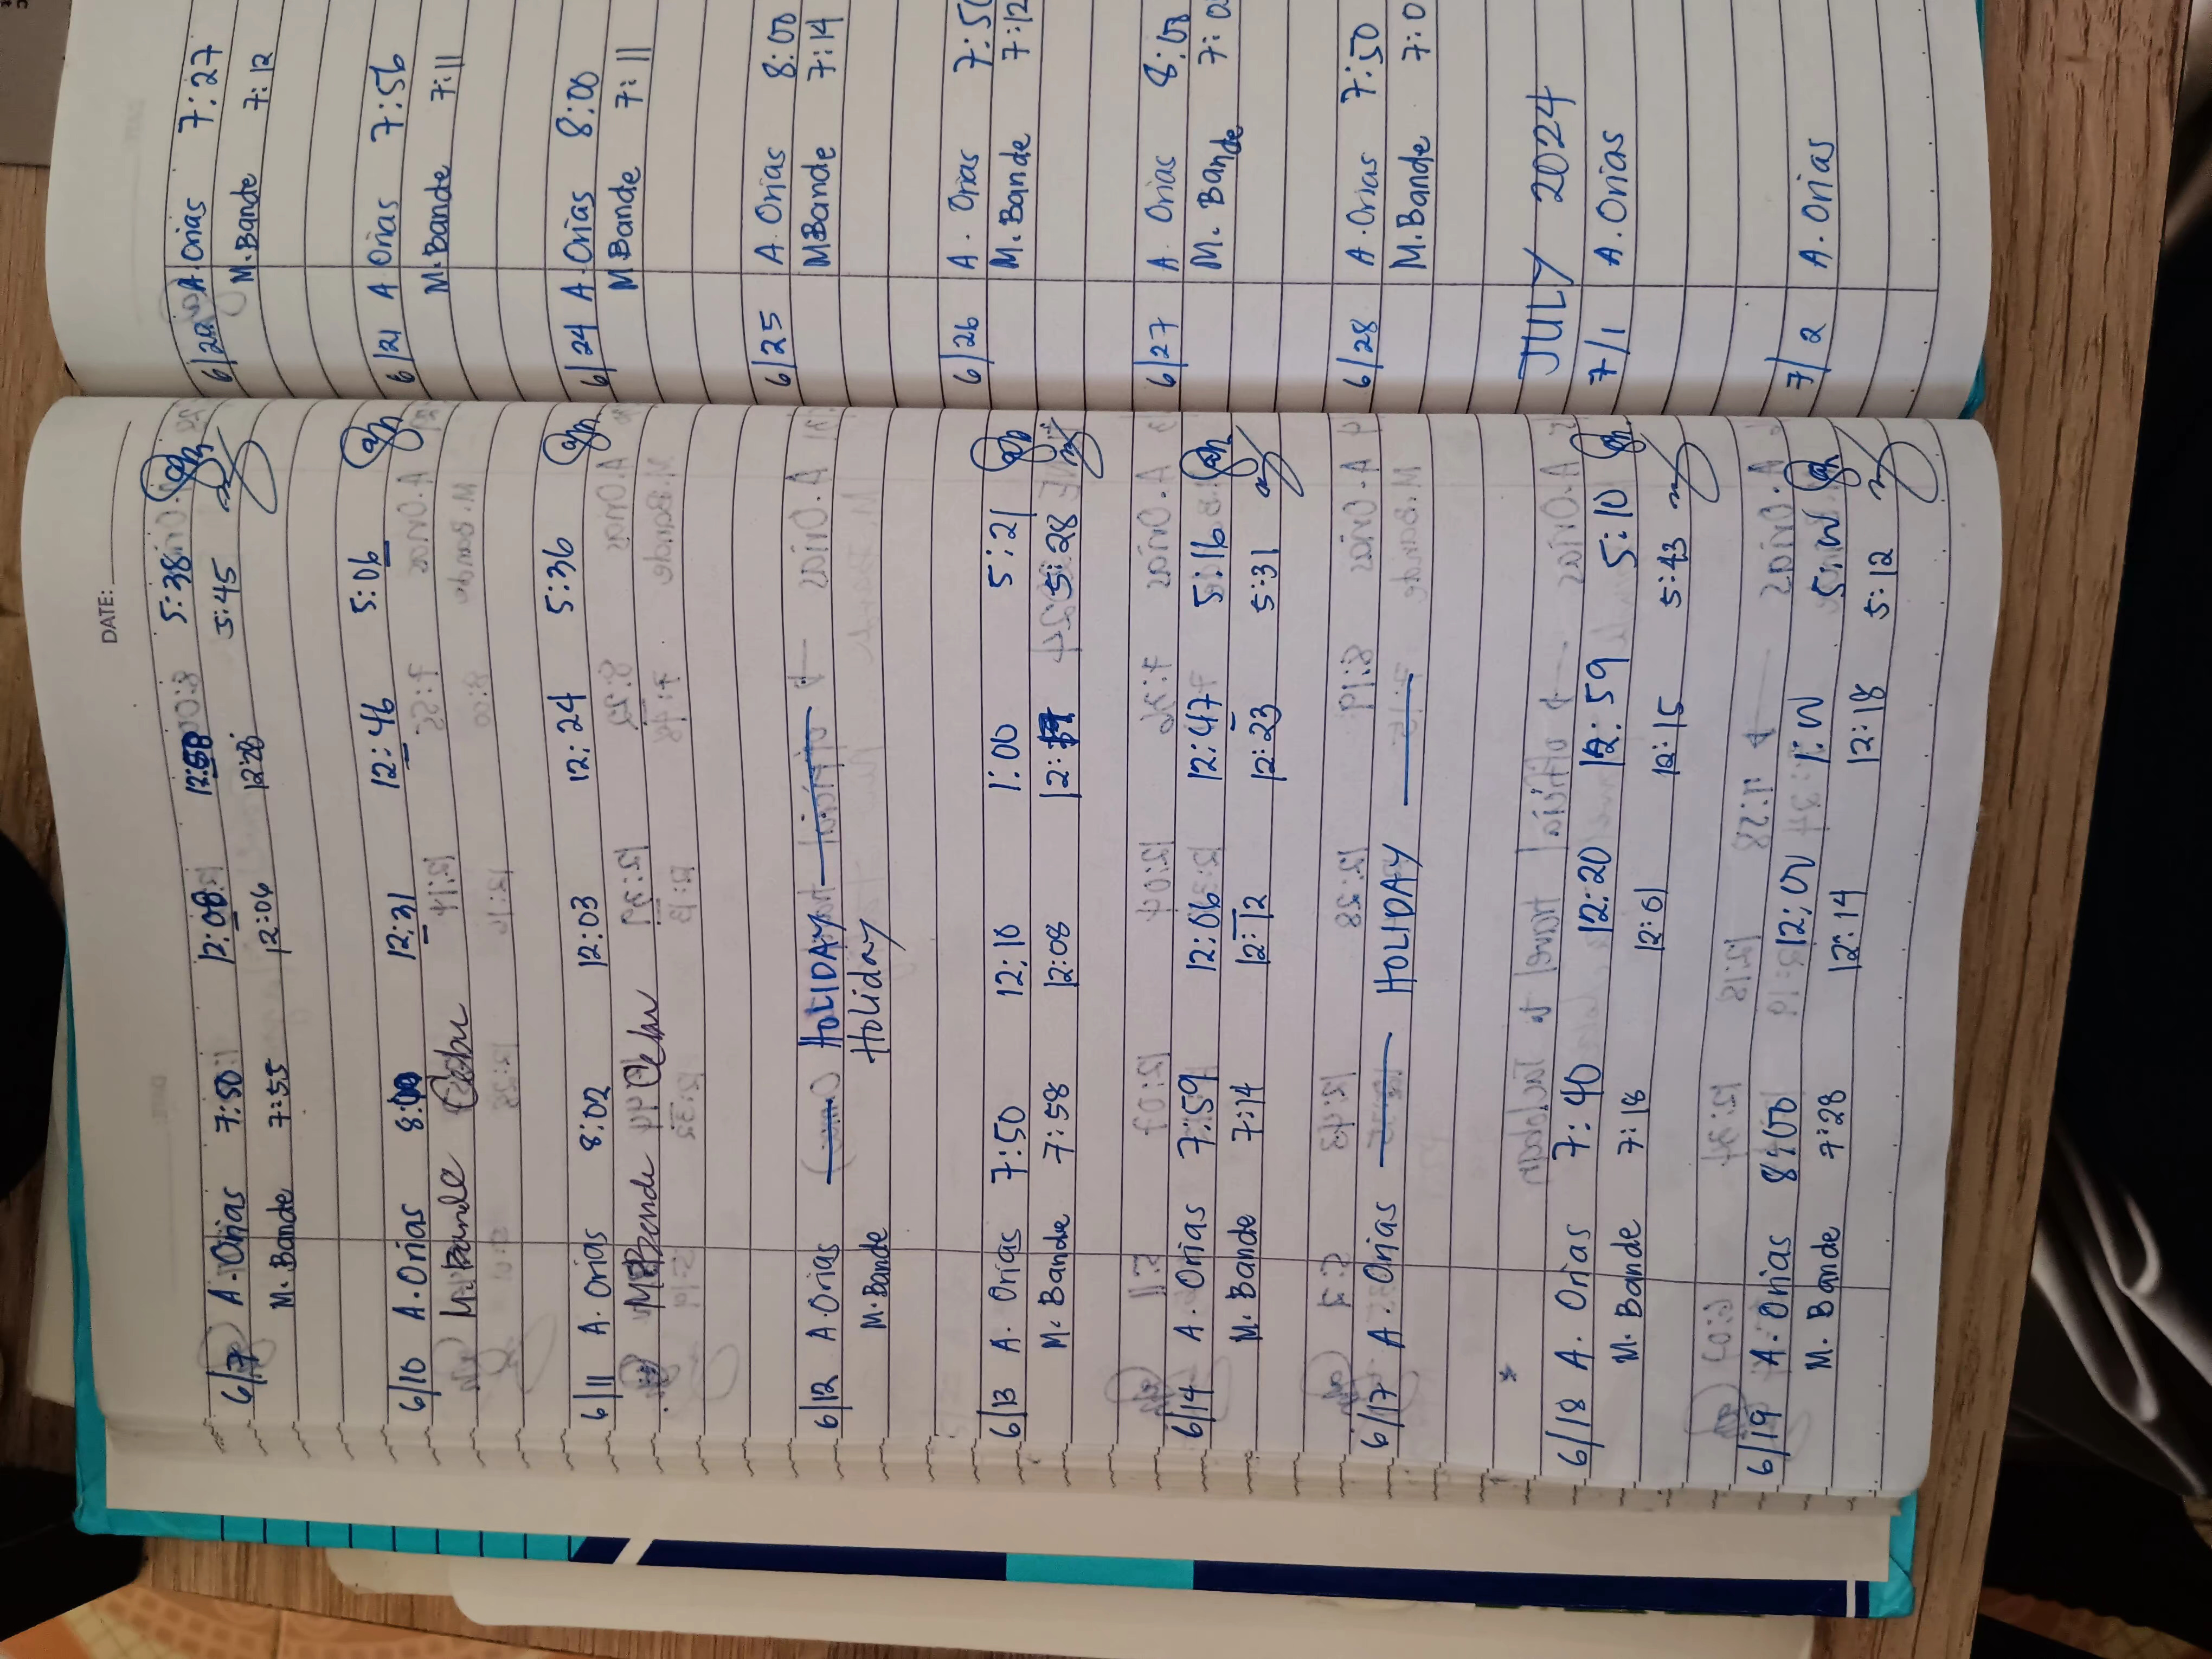 DATE:
6/17 A. Orias 7:50 12:08 12:58 5:38
M. Bande 7:55 12:06 12:26 5:45
6/10 A. Orias 12:31 12:46 5:06
M. Bande Cebu
6/11 A. Orias 8:02 12:03 12:24 5:36
M. Bande Cebu
6/12 A. Orias HOLIDAY
M. Bande Holiday
6/13 A. Orias 7:50 12:10 1:00 5:21
M. Bande 7:58 12:08 5:28
6/14 A. Orias 7:59 12:06 12:47 5:16
M. Bande 7:14 12:12 12:23 5:31
6/17 A. Orias HOLIDAY
*
6/18 A. Orias 7:40 12:20 12:59 5:10
M. Bande 7:18 12:01 12:15 5:43
6/19 A. Orias 8:00 12:00 1:00 5:00
M. Bande 7:28 12:14 12:18 5:12
6/20 A. Orias 7:27
M. Bande 7:12
6/21 A. Orias 7:56
M. Bande 7:11
6/24 A. Orias 8:00
M Bande 7:11
6/25 A. Orias 8:00
M Bande 7:14
6/26 A. Orias 7:50
M. Bande 7:12
6/27 A. Orias 8:00
M. Bande
6/28 A. Orias 7:50
M. Bande
JULY 2024
7/1 A. Orias
7/2 A. Orias